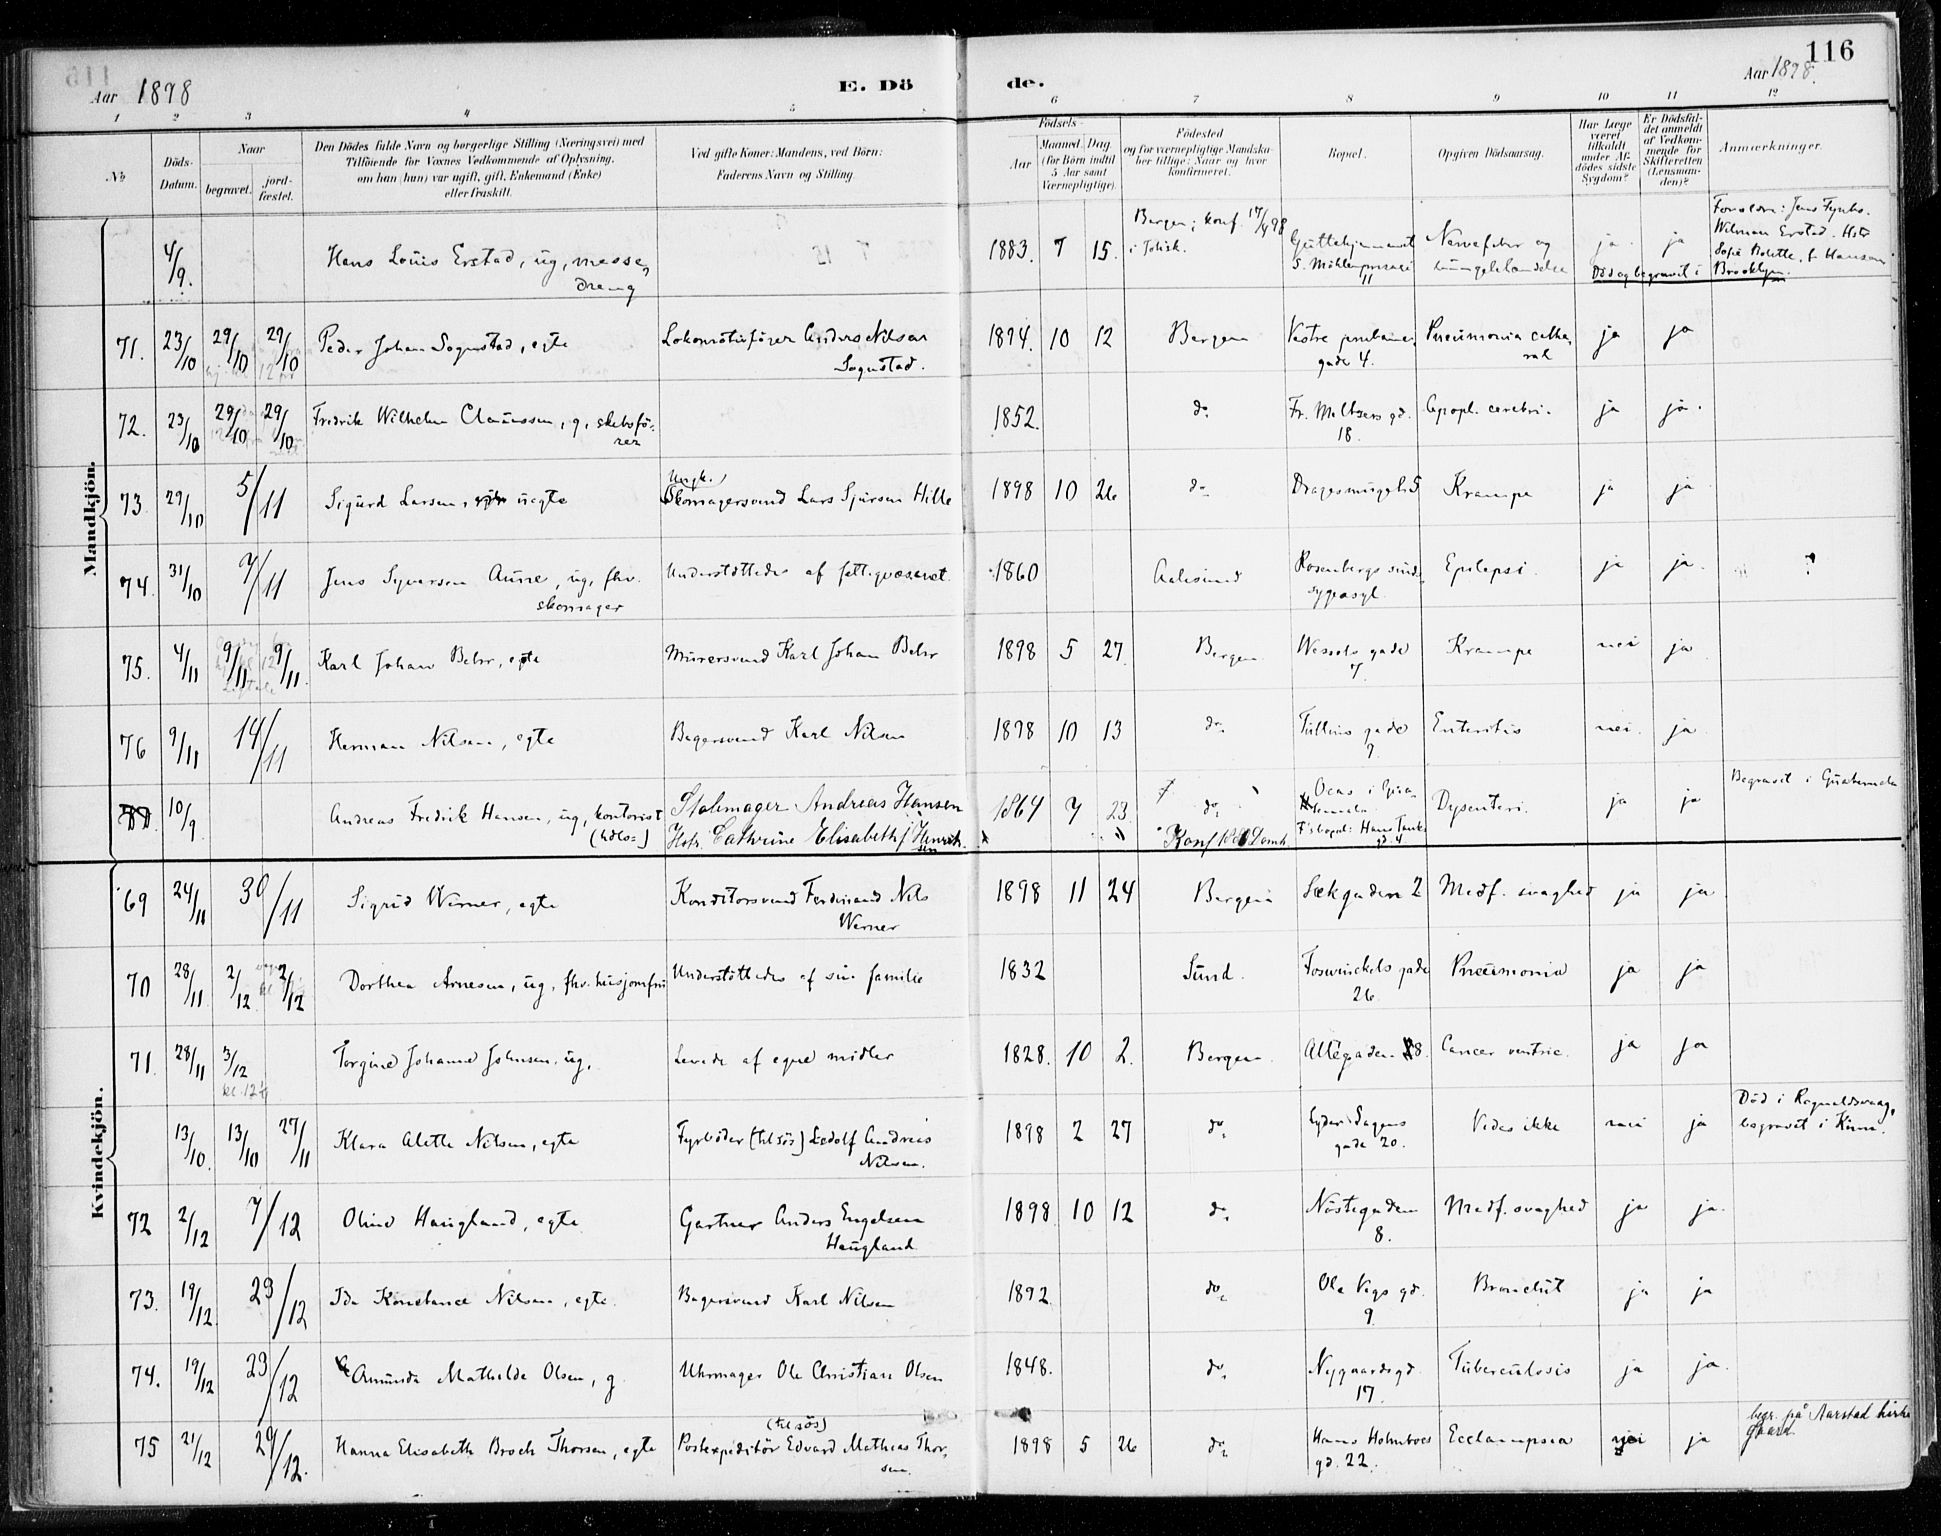 116
Aar 1898
E. Dö
de.
Aar 1898.
1 2 3 4 5 6 7 8 9 10 11 12
No
Döds-
Datum.
Naar
begravet.
jord-
fæstet.
Den Dödes fulde Navn og borgerlige Stilling (Næringsvei) med
Tilföiende for Voxnes Vedkommende af Oplysning,
om han (hun) var ugift, gift, Enkemand (Enke)
eller fraskilt.
Ved gifte Koner: Mandens, ved Börn:
Faderens Navn og Stilling.
Födsels-
Aar
Maaned. Dag.
(for Börn indtil
5 Aar samt
Værnepligtige).
Födested
og for værnepligtige Mandska-
ber tillige: Naar og hvor
konfirmeret.
Bopæl.
Opgiven Dödsaarsag.
Har Læge
været
tilkaldt
under Af-
dödes sidste
Sygdom?
Er Dödsfal-
det anmeldt
af Vedkom-
mende for
Skifteretten
(Lensman-
den)?
Anmærkninger.
Mandkjön.
4/9. Hans Louis Erstad, ug, messe-
dreng
1883. 7 15.
Bergen; konf. 17/4 98
i Johisk.
Guttehjemmet
S. Möhlenpris
11
Nervefeber og
lungebetændelse
ja. ja
Död og begravet i
Brooklyn.
Forældre: Jens Fynbo.
Wilman Erstad. Hstr
Sofie Bolette, f. Hansen
71. 23/10 29/10 29/10 Peder Johan Sognstad, egte
Lokomotivfører Anders Nilsen
Sognstad.
1894. 10 12 Bergen
Vestre
gade 4.
Pneumonia cathar-
ral
ja ja
72. 23/10 29/10 29/10 Fredrik Wilhelm Claussen, g, skibsfö-
rer
1852. do
Fr. Meltzers gd.
18.
Apopl. cerebri.
ja ja.
73. 29/10 5/11 Sigurd Larsen, uegte
Ungk.
Skomagersvend Lars Sjursen Hille
1898 10 26 do
Dragesmuget 5
Krampe
ja ja
74. 31/10 7/11 Jens Syversen Aune, ug, fhv.
skomager
Understöttedes af fattigvæsenet.
1860 Aalesund
Rosenbergs sinds-
sygeasyl
Epilepsi.
ja ja. ?
75. 4/11 9/11 9/11. Karl Johan Behr, egte
Murersvend Karl Johan Behr
1898 5 27. Bergen
Wessels gade
7
Krampe
nei ja
76 9/11 14/11 Herman Nilsen, egte
Bagersvend Karl Nilsen
1898 10 13 do
Tullins gade
9
Enteritis
nei. ja.
10/9 Andreas Fredrik Hansen, ug, kontorist
(tilsös)
Stolmager Andreas Hansen
Hstr. Cathrine Elisabeth f. Henrik-
sen
1864 7 23. do
Konf Domk.
Ocos i Gua-
temala.
F. bopæl: Hans Tanks
gd. 4
Dysenteri.
ja ja
Begravet i Guatemala
Kvindekjön.
69 24/11 30/11 Sigrid Werner, egte
Konditorsvend Ferdinand Nils
Werner
1898 11 24 Bergen
Lækgaden 2
Medf. svaghed
ja ja
70 28/11 2/12 2/12 Dorthea Arnesen, ug, fhv. husjomfru
Understöttedes af sin familie
1832 Sund.
Foswinckels gade
26.
Pneumonia
ja ja
71. 28/11 3/12 Torgine Johanne Johnsen, ug,
kl. 12½
Levede af egne midler
1828. 10 2. Bergen.
Allégaden 8.
Cancer ventric.
ja ja
13/10. 13/10 27/11 Klara Alette Nilsen, egte
Fyrböder (tilsös) Ledolf Andreas
Nilsen.
1898 2 27 do
Lyder Sagens
gade 20.
Vides ikke
nei ja
Död i Rognaldsvaag,
begravet i Kinn.
72 2/12 7/12 Oline Haugland, egte
Gartner Anders Engelsen
Haugland
1898 10 12 do
Nöstegaden
8.
Medf. svaghed
ja ja.
73. 19/12 23/12 Ida Konstance Nilsen, egte.
Bagersvend Karl Nilsen
1892. do
Ole Vigs gd.
9.
Bronchit
ja ja
74. 19/12 23/12 Amunda Mathilde Olsen, g.
Uhrmager Ole Christian Olsen
1848. do
Nygaardsgd.
17
Tuberculosis
ja ja.
75 21/12 29/12. Hanna Elisabeth Broch Thorsen, egte
(tilsös)
Postexpeditör Edvard Mathias Thor-
sen.
1898 5 26 do
Hans Holmboes
gd. 22.
Ecclampsia
nei ja
begr. på Aarstad kirke
gaard.